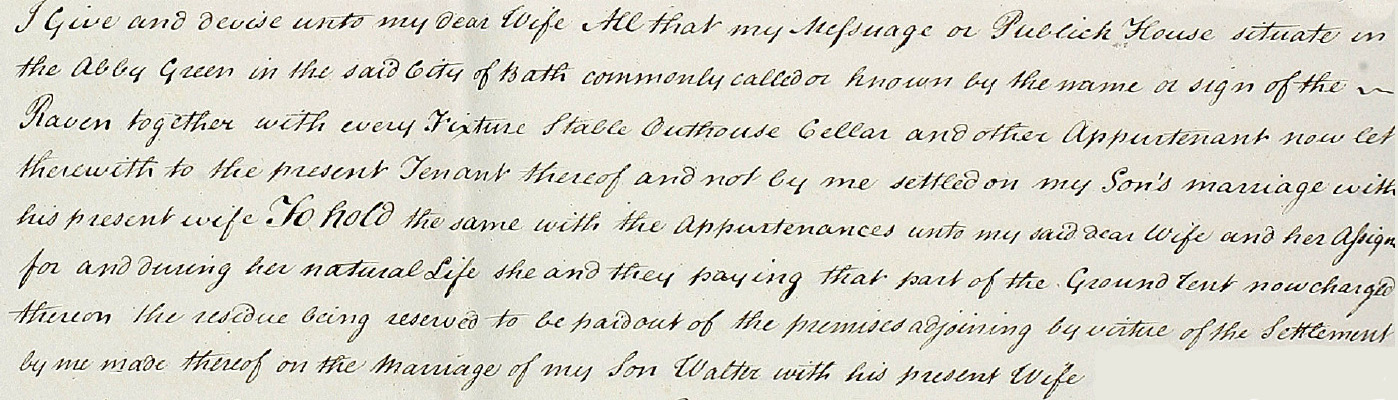 I Give and devise unto my dear Wife All that my Messuage or Publick House situate in
the Abby Green in the said City of Bath commonly called or known by the name or sign of the
Raven together with every Fixture Stable Outhouse Cellar and other Appurtenant now let
therewith to the present Tenant thereof and not by me settled on my Son's marriage with
his present wife To hold the same with the Appurtenances unto my said dear Wife and her Assign
for and during her natural Life she and they paying that part of the Ground rent now charged
thereon the residue being reserved to be paid out of the premises adjoining by virtue of the Settlement
by me made thereof on the Marriage of my Son Walter with his present Wife